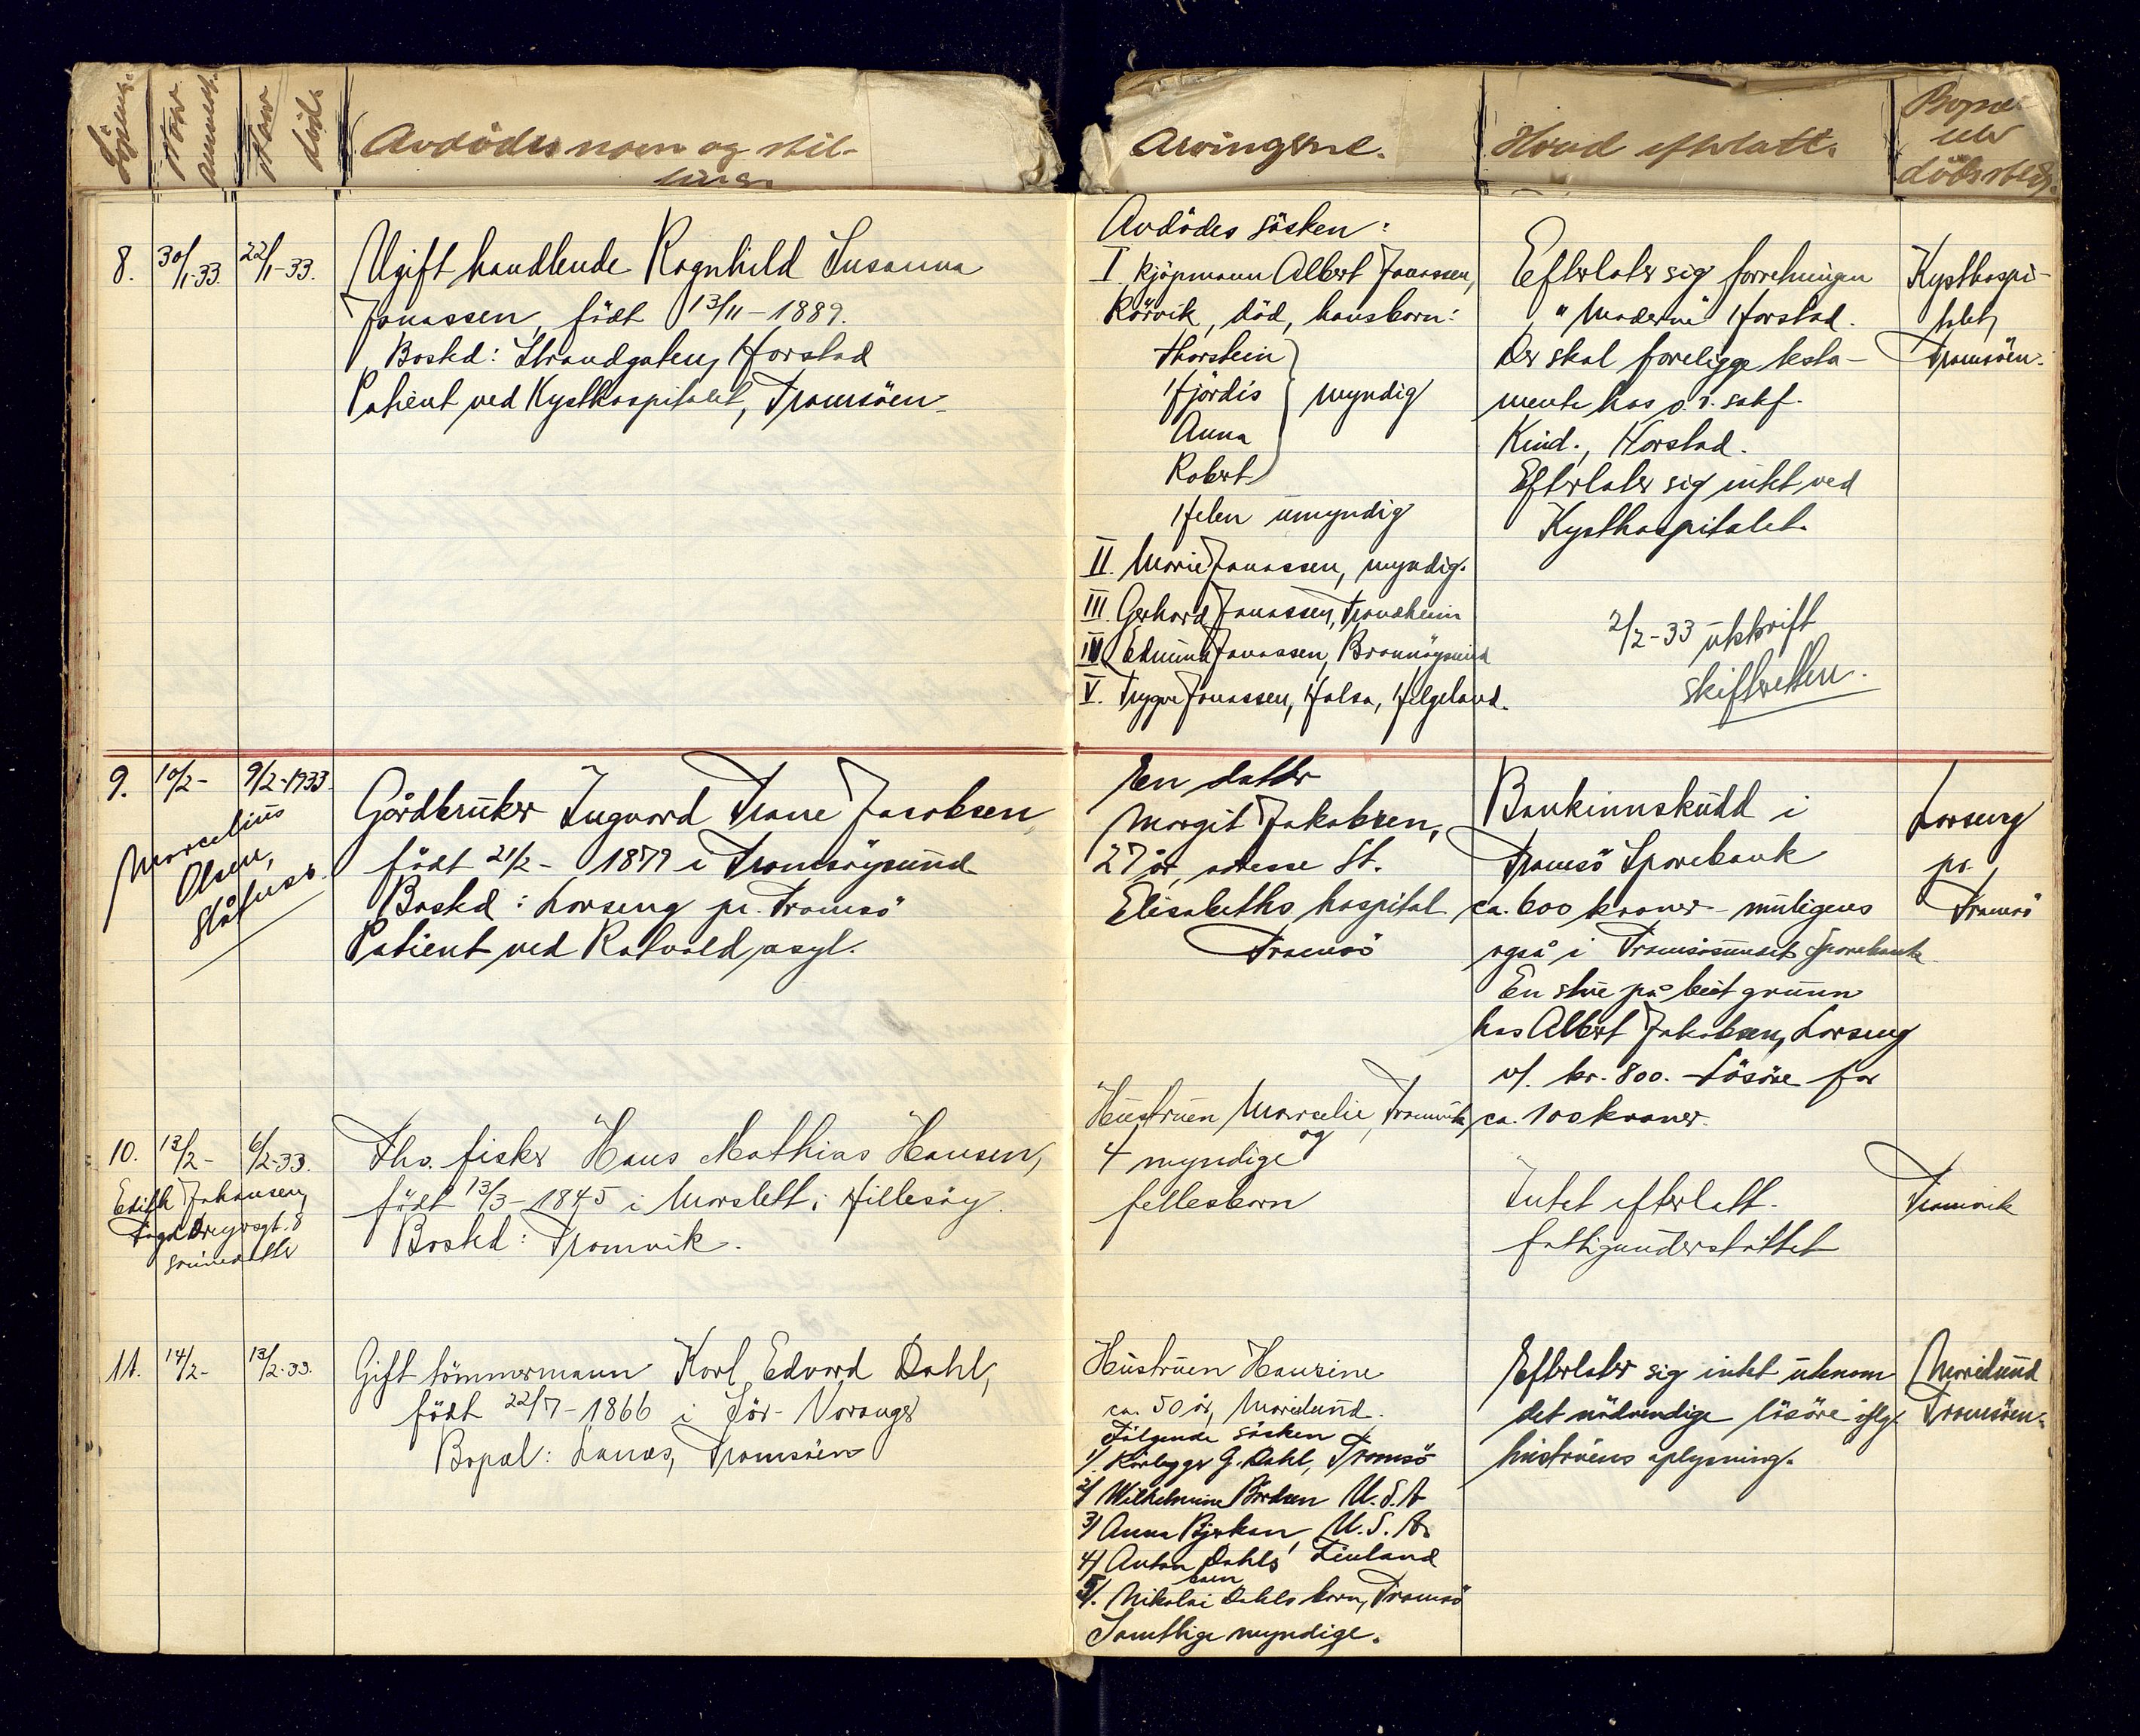 Löpenr.
Når
anmeldt.
Når
död.
Avdödes navn og stil-
ling.
Arvingene.
Hvad efterlatt.
Bopæl
eller
dödssted.
8.
30/1-33.
22/1-33.
Ugift handlende Ragnhild Susanna
Jonassen, födt 13/11-1889.
Bosted: Strandgaten, Harstad
Patient ved Kysthospitalet, Tromsöen.
Avdödes sösken:
I. Kjöpmann Albert Jonassen,
Rörvik, död, hans barn:
Thorstein
Hjördis } myndig
Anna
Robert
Helen umyndig
II. Marie Jonassen, myndig.
III. Gerhard Jonassen, Trondheim
IV Edmund Jonassen, Brönnöysund
V. Trygve Jonassen, Halsa, Helgeland.
Efterlater sig forretningen
"Moderne" Harstad.
Der skal foreligge testa-
mente hos o.r. sakf.
Kind., Harstad.
Efterlater sig intet ved
Kysthospitalet.
2/2-33 utskrift
skifteretten.
Kysthospi-
talet,
Tromsöen.
9.
10/2-
9/2-1933.
Marcelius
Olsen,
Slåtnes
Gårdbruker Ingvard Trane Jacobsen,
födt 21/2-1879 i Tromsöysund
Bosted: Larseng pr. Tromsö
Patient ved Rotvold asyl.
En datter
Margit Jakobsen,
27 år, adresse St.
Elisabeths hospital
Tromsö
Bankinnskudd i
Tromsö Sparebank
ca. 600 kroner - muligens
også i Tromsösundets Sparebank
En stue på leiet grunn
hos Albert Jakobsen, Larseng
v/. kr. 800. - Lösöre for
ca. 100 kroner.
Larseng
pr.
Tromsö
10.
13/2-
6/2-33.
Edith Johansen,
Fogd Dreyersgt. 8
sönnedatter
Fhv. fisker Hans Mathias Hansen,
födt 13/3-1845 i Marslett i Hillesöy.
Bosted: Tromvik.
Hustruen Marcelie, Tromvik
og
4 myndige
fellesbarn
Intet efterlatt.
fattigunderstöttet
Tromvik
11.
14/2-
13/2-33.
Gift tömmermann Karl Edvard Dahl,
födt 22/7-1866 i Sör-Varanger
Bopæl: Lanes, Tromsöen
Hustruen Hansine
ca. 50 år, Marielund.
Fölgende sösken
1/. Rörlegger G. Dahl, Tromsö
2/ Wilhelmine Bårdsen U.S.A
3/ Anna Bjerkan, U.S.A.
4/ Anton Dahls barn, Finland
5/. Nikolai Dahls barn, Tromsö
Samtlige myndige.
Efterlater sig intet utenom
det nödvendige lösöre iflg.
hustruens oplysning.
Marielund
Tromsöen.